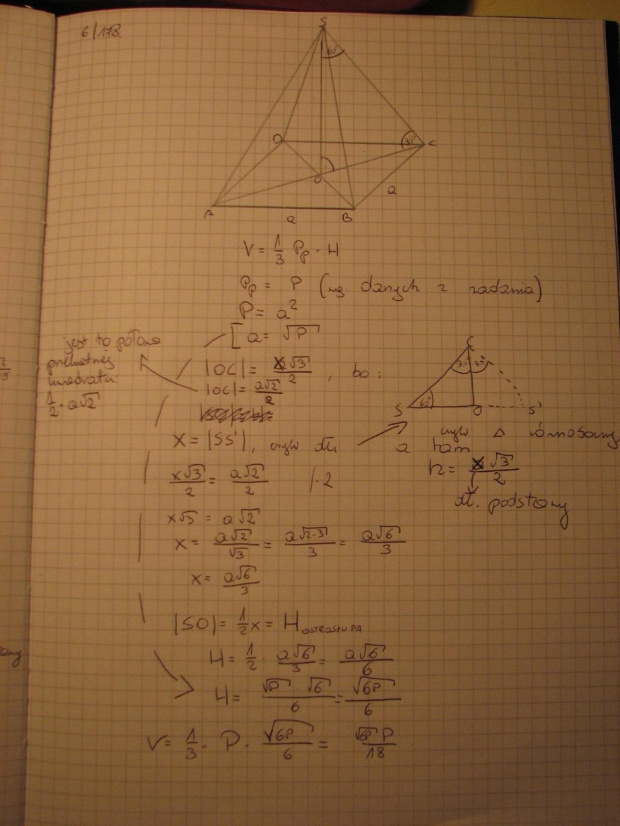 6/178
S
60°
D
30°
C
O
A
B
a
a
V = 1/3 Pp · H
Pp = P (wg danych z zadania)
P = a²
[ a = √P
jest to połowa
przekątnej
kwadratu
1/2 · a√2
|OC| = x√3/2 , bo:
|OC| = a√2/2
C
30° 30°
60°
S O S'
czyli Δ równoboczny
a tam
h = x√3/2
dł. podstawy
x = |SS'|, czyli dł.
x√3/2 = a√2/2 /·2
x√3 = a√2
x = a√2/√3 = a√2·3/3 = a√6/3
x = a√6/3
|SO| = 1/2 x = H OSTROSŁUPA
H = 1/2 · a√6/3 = a√6/6
H = √P √6/6 = √6P/6
V = 1/3 · P · √6P/6 = √6P P/18